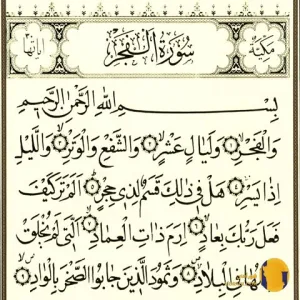 مكية سورة الفجر آياتها
بسم الله الرحمن الرحيم
والفجر وليال عشر والشفع والوتر والليل
إذا يسر هل في ذلك قسم لذي حجر ألم تر كيف
فعل ربك بعاد إرم ذات العماد التي لم يخلق
مثلها في البلاد وثمود الذين جابوا الصخر بالواد